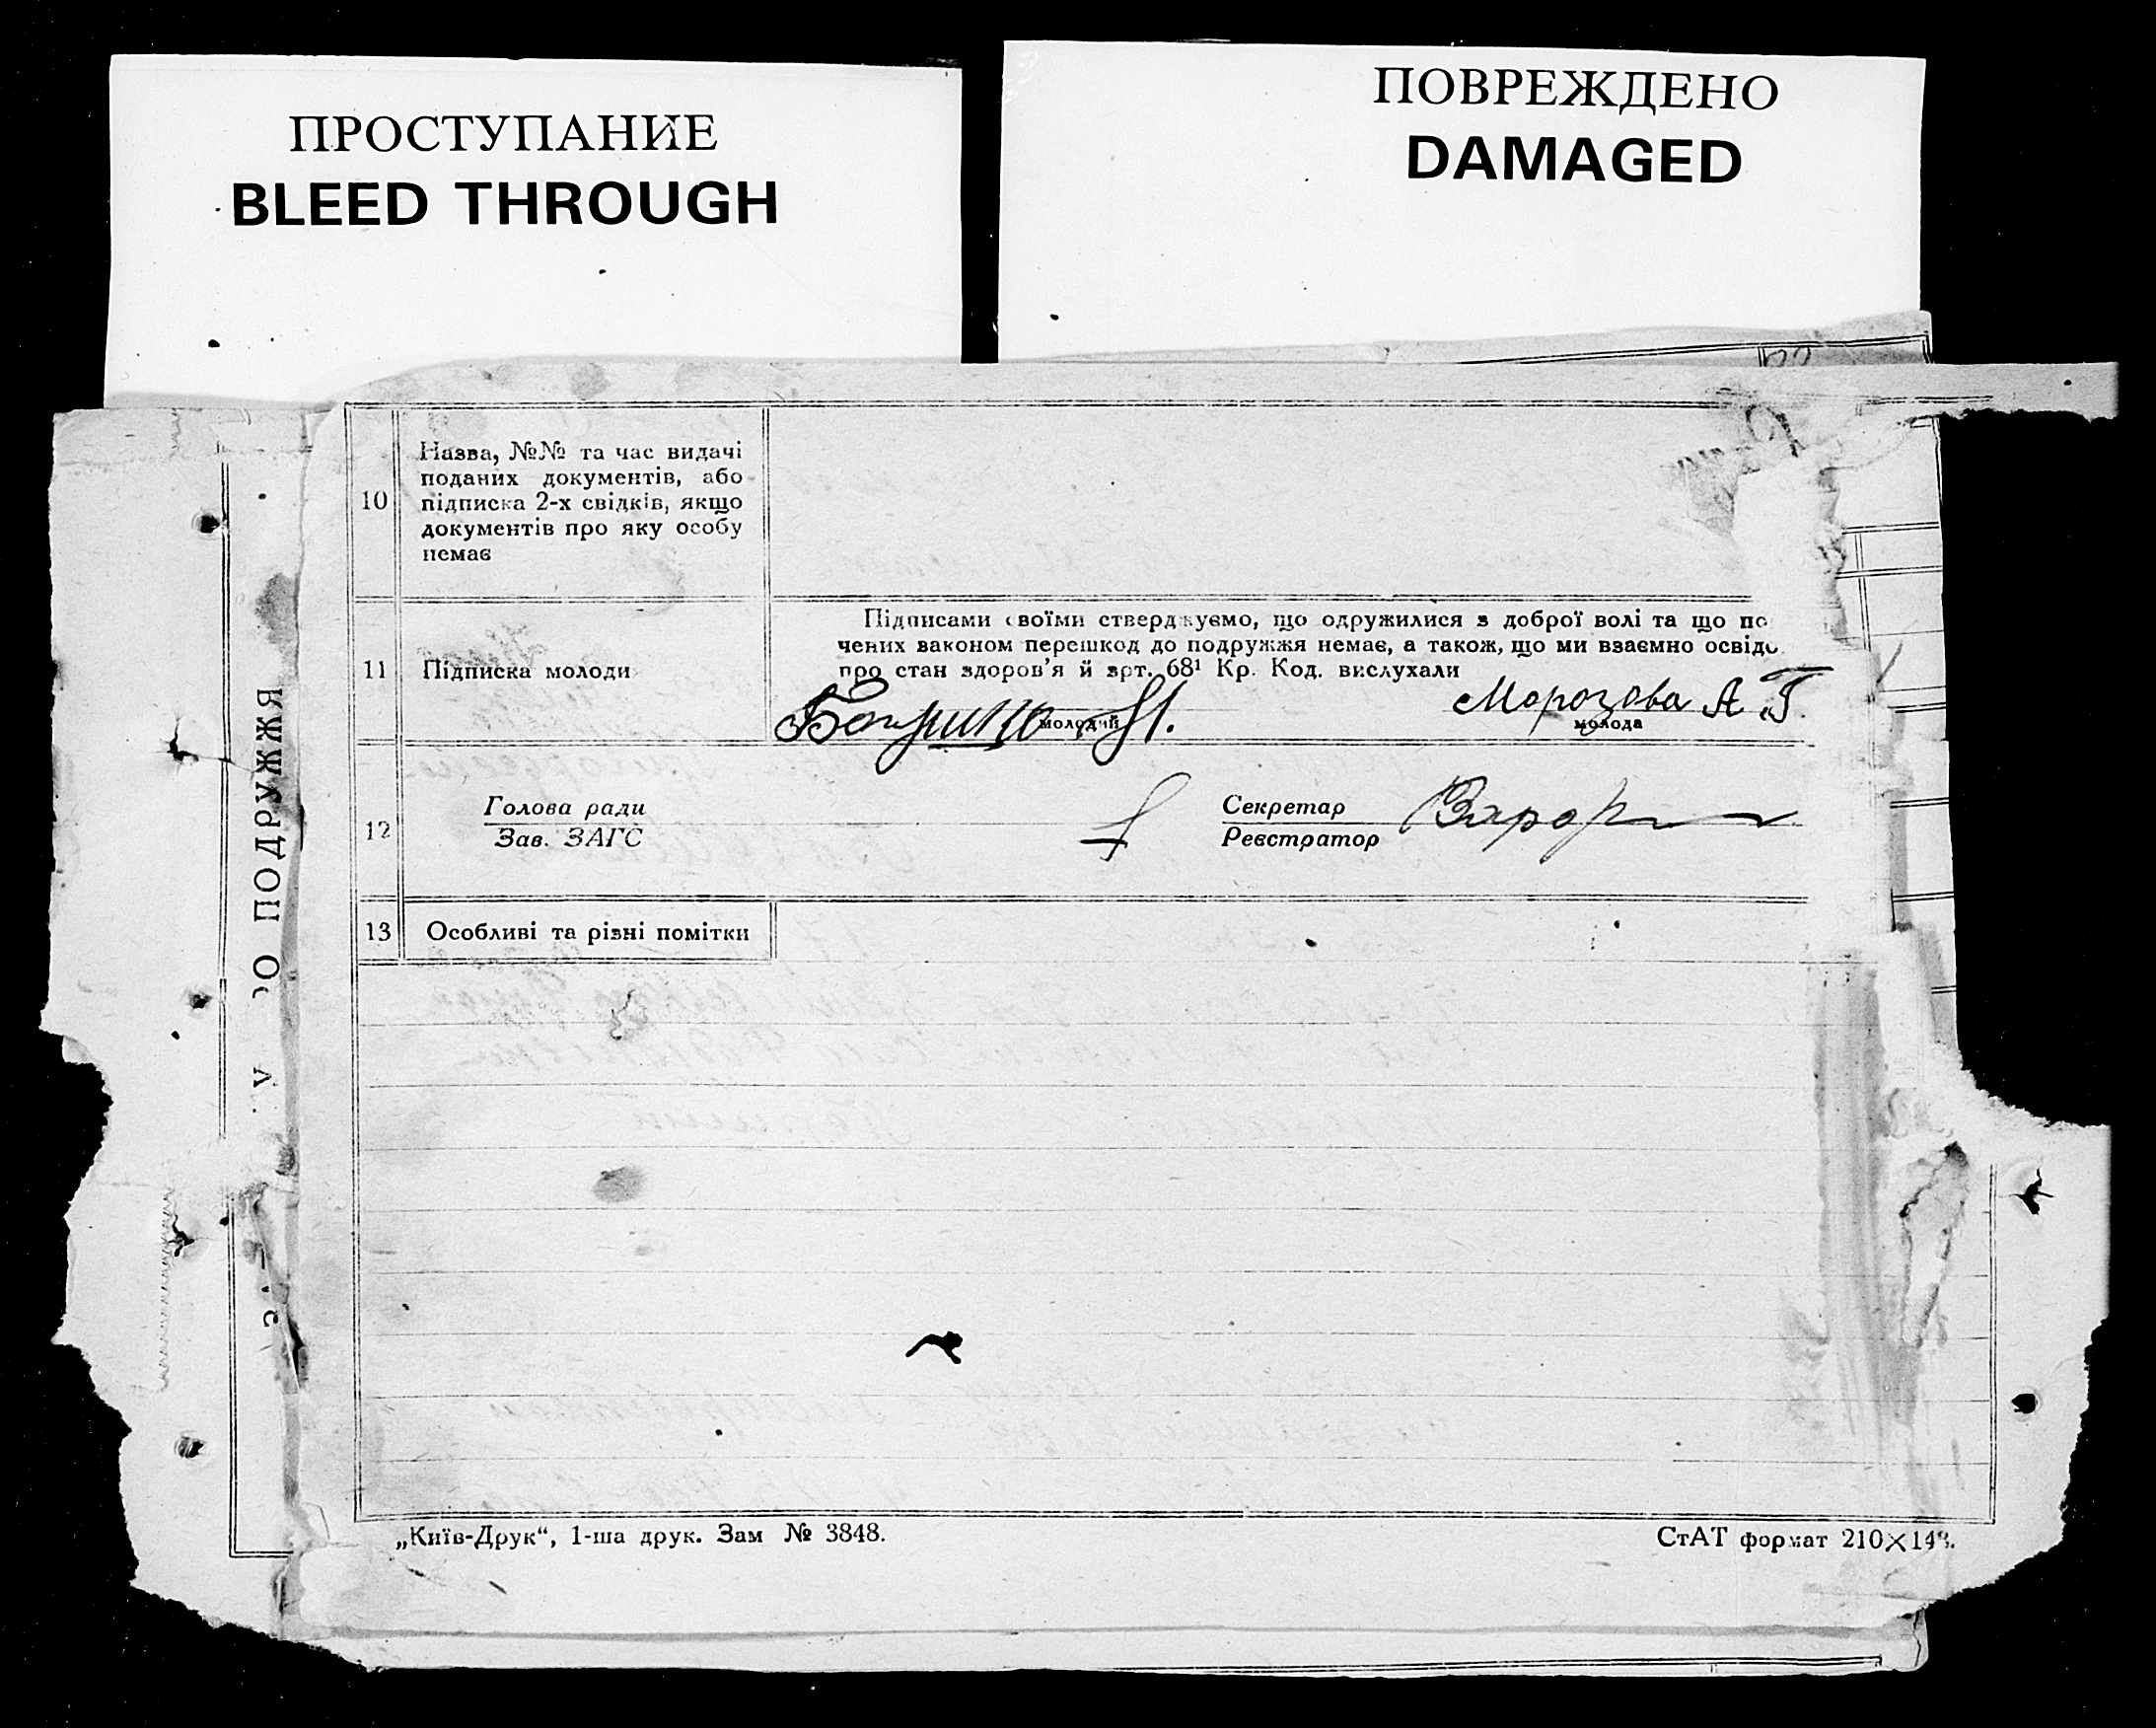 ПРОСТУПАНИЕ
BLEED THROUGH
ПОВРЕЖДЕНО
DAMAGED
10
Назва, №№ та час видачі
поданих документів, або
підписка 2-х свідків, якщо
документів про яку особу
немає
11
Підписка молоди
Підписами своїми стверджуємо, що одружилися з доброї волі та що по
чених законом перешкод до подружжя немає, а також, що ми взаємно освідо
про стан здоров'я й арт. 68¹ Кр. Код. вислухали
Морозова А Г.
молодий
молода
12
Голова ради
Зав. ЗАГС
Секретар
Реєстратор
13
Особливі та різні помітки
О ПОДРУЖЖЯ
„Київ-Друк“, 1-ша друк. Зам № 3848.
СтАТ формат 210×148.